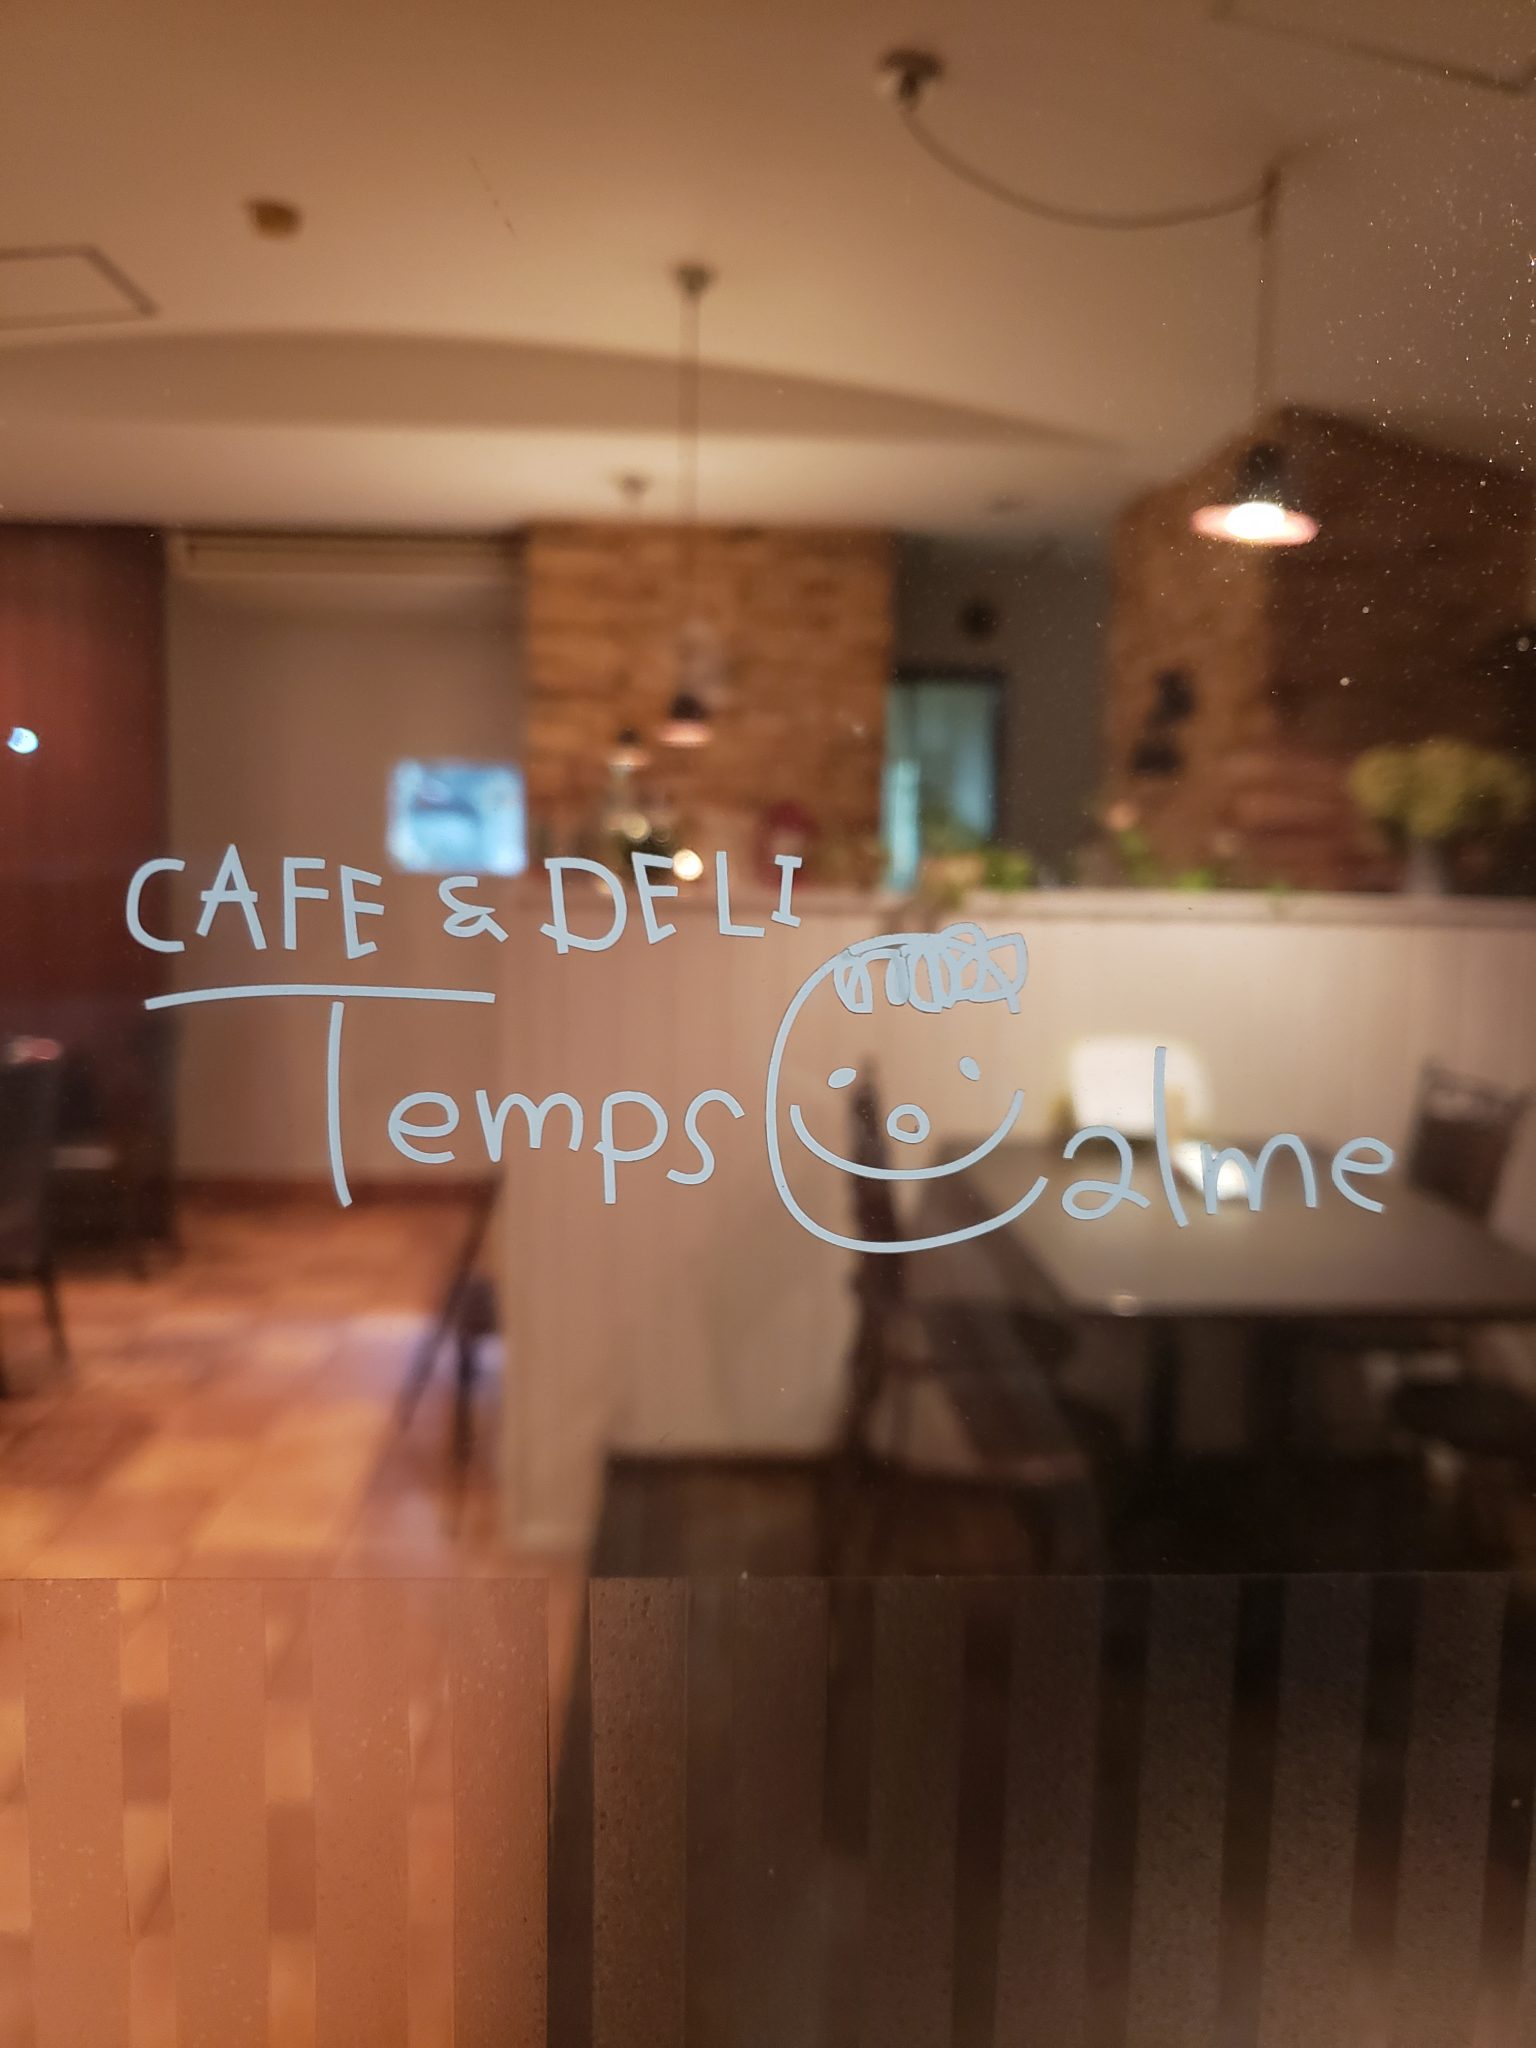 CAFE & DELI
Temps Calme